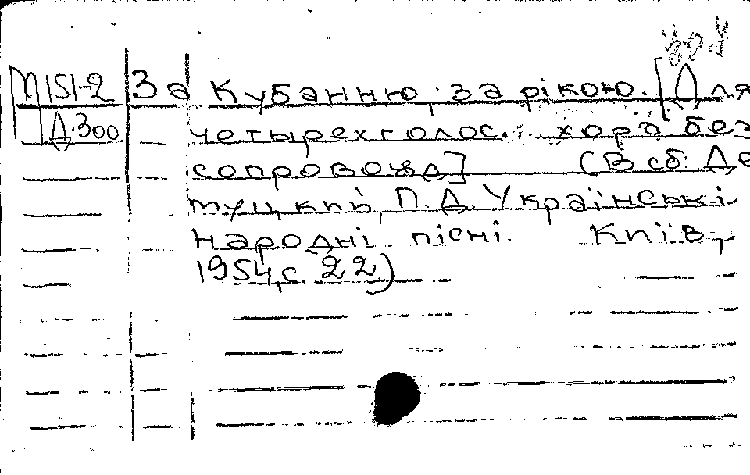 М151-2 За Кубанню, за рікою. [Для
Д.300 четырехголос. хора без
сопровожд] (В сб: Де
муцкий, П.Д. Українські
народні пісні. Київ,
1954, с. 22)